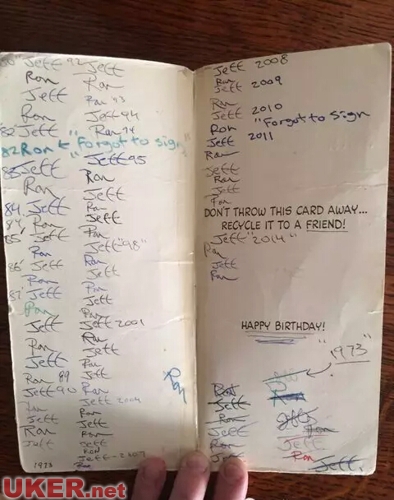 80 Jeff 92
Ron
Jeff
Ron
82 Jeff
82 Ron "Forgot to sign"
83 Jeff
Ron
Jeff
84 Jeff
84 Ron
85 Jeff
Ron
86 Jeff
Ron
87 Jeff
Ron
Jeff
Ron
Jeff
Ron 89
Jeff 90
Ron
Jeff
Ron
Jeff
1973
Jeff
Ron
Ron 93
Jeff 94
Ron 94
Jeff 95
Ron
Jeff
Ron
Jeff
Ron
Jeff "98"
Ron
Jeff
Ron
Jeff
Ron
Jeff 2001
Ron
Jeff
Ron
Jeff
Ron
Jeff 2004
Ron
Jeff
Ron
Jeff-2007
Ron
Ron
Jeff 2008
Ron
Jeff 2009
Ron
Jeff 2010
Ron "Forgot to sign"
Jeff 2011
Ron
Jeff
Ron
Jeff
Ron
DON'T THROW THIS CARD AWAY...
RECYCLE IT TO A FRIEND!
Jeff "2014"
Ron
Jeff
Ron
HAPPY BIRTHDAY!
"1973"
Jeff
Ron
Jeff
Ron
Jeff
Ron
Jeff
Ron
Jeff
Ron
Jeff
UKER.net